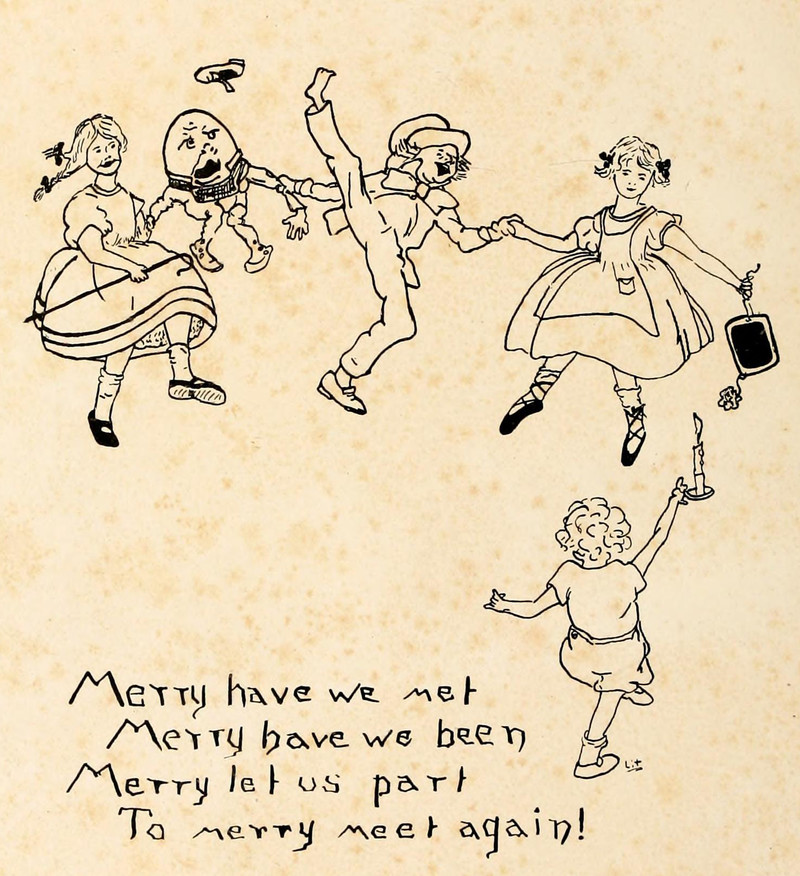 Merry have we met
Merry have we been
Merry let us part
To merry meet again!